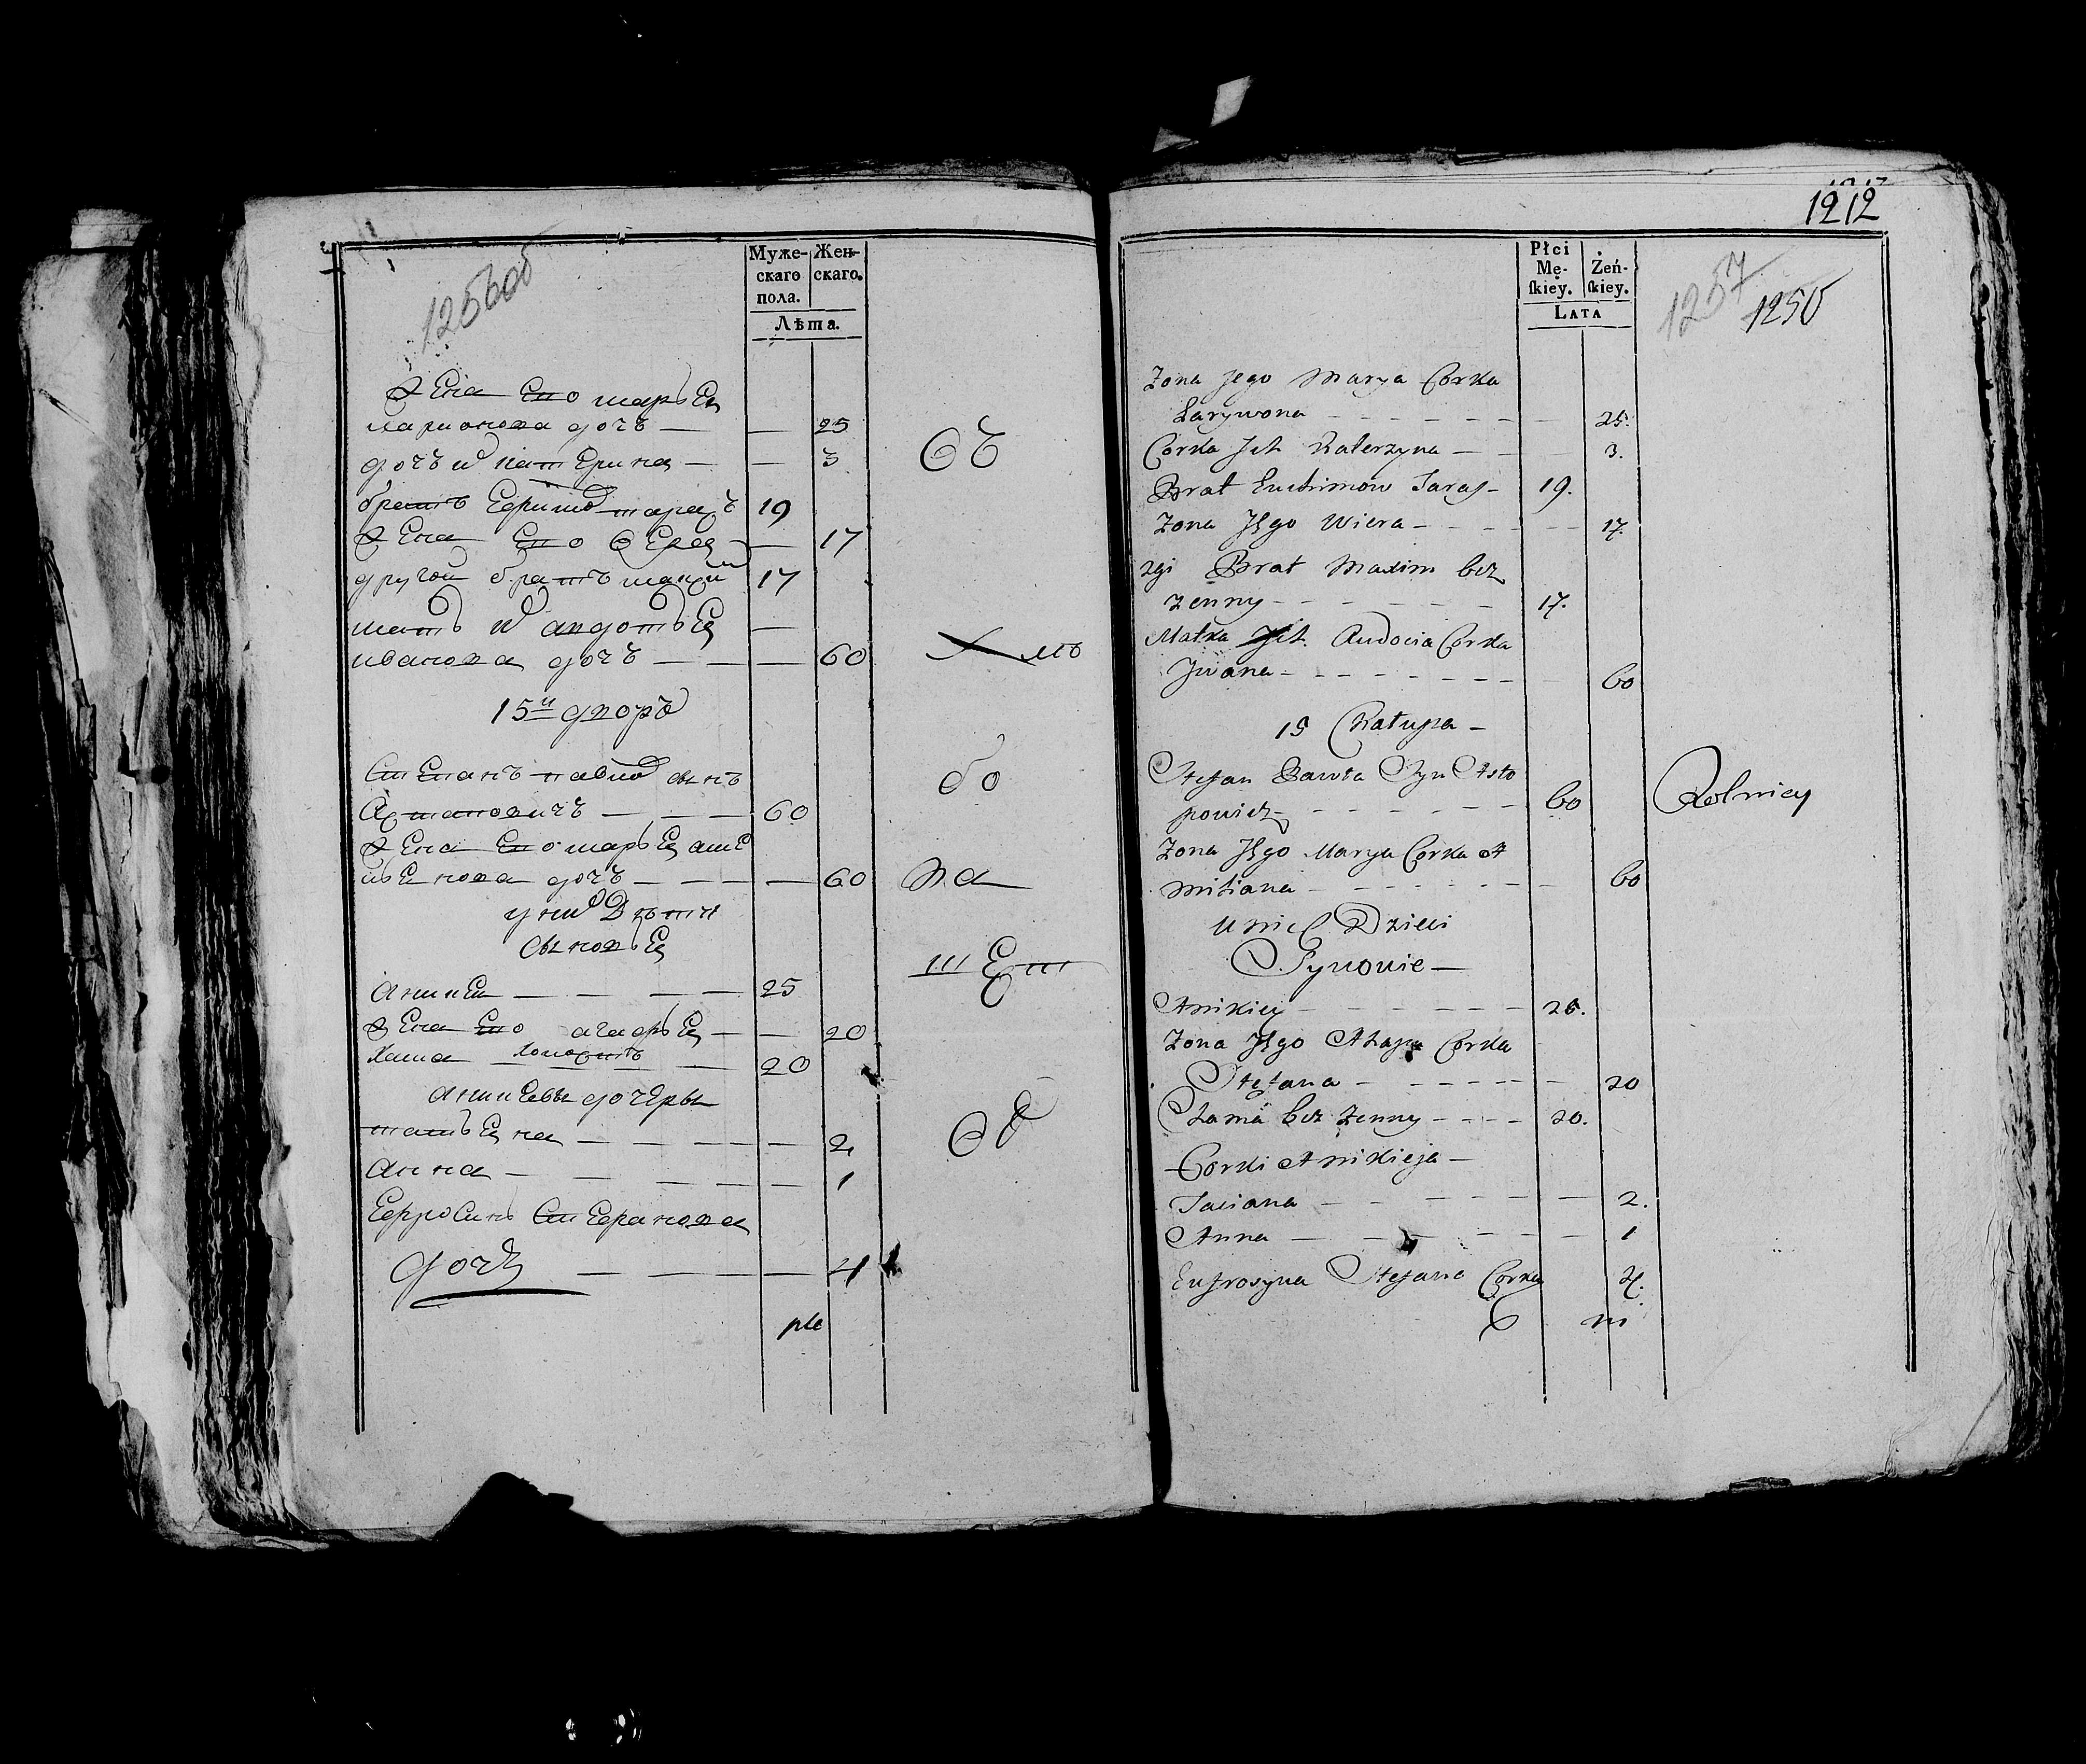 1256об
Муже-
скаго
пола.
Жен-
скаго.
Лѣта.
жена Ево марья
ларионова дочъ — — 25
дочъ их катерина — — 3
братъ Ефимов тарасъ 19
жена Ево Вера — 17
другой братъ максим 17
мать их авдотья —
иванова дочъ — — — 60
15й дворъ
Степанъ павлов сынъ
Астапович — — — 60
жена Ево марья аме
льянова дочъ — — — — 60
у них Дѣти
сыновья
аникей — — — — 25
жена Ево агафья — — 20
хама холостъ — 20
аникеевы дочеры
татьяна — — — — — 2
анна — — — — — 1
Ефросинья Стефанова
дочь — — — 4
съ
хмъ
бо
на
шет
об
1212
1257
1250
Płci
Mę-
skiey.
Żeń-
skiey.
LATA
Zona Jego Marya Corka
Larywona - - - - - - 25.
Corka Ich Katerzyna - - 3.
Brat Euchimow Taras - 19.
Zona Jego Wiera - - - - - 17.
2gi Brat Maxim bez
zenny - - - - - - 17.
Matka Ich Audocia Corka
Jwana - - - - - - - - 60
15 Chałupa -
Stefan Pawła Syn Asto
powicz - - - - - - 60
Rolnicy
Zona Jego Marya Corka A
miliana - - - - - - - 60
U nich Dzieci
Synowie -
Anikiey - - - - - - 25.
Zona Jego Ahapa Corka
Stefana - - - - - - - 20
Chama bez zenny - - - - 20.
Corki Anikieja -
Taciana - - - - - - - 2.
Anna - - - - - - - 1
Eufrosyna Stefana Corka 4.